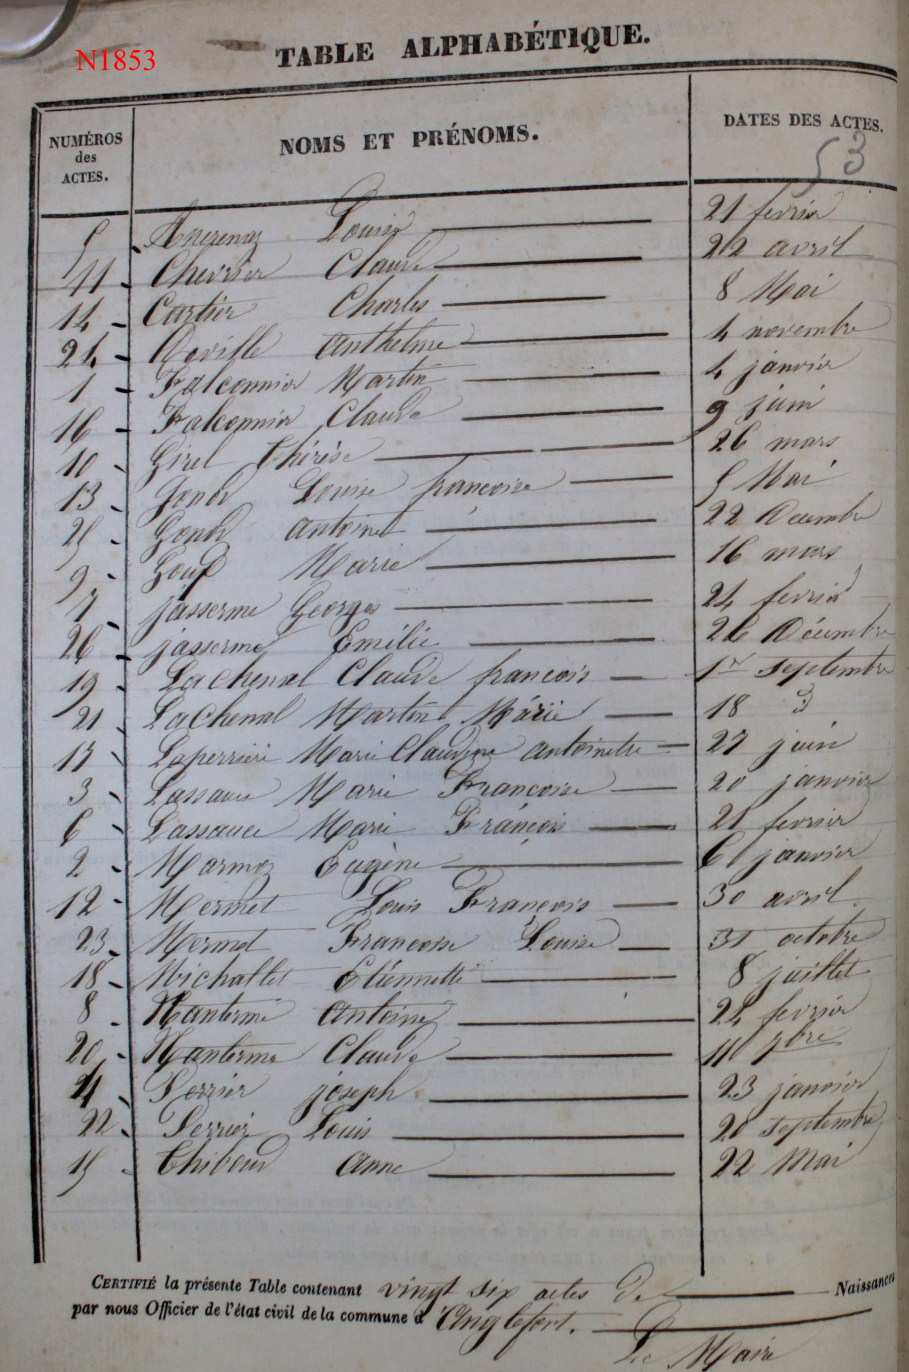 N1853
TABLE ALPHABÉTIQUE.
NUMÉROS des ACTES.
NOMS ET PRÉNOMS.
DATES DES ACTES.
53
5 Louise 21 fevrier
11 Chevrier Claude 22 avril
14 Cartier Charles 8 Mai
24 Coville anthelme 4 novembre
1 Falconnier Martin 4 janvier
16 Falconnier Claude 9 juin
10 Girel thérèse 26 mars
13 Gonod Louise françoise 5 Mai
25 Gonod antoine 22 Decembre
9 Marie 16 mars
7 jasserme Georges 24 fevrier
26 jasserme Emélie 26 Décembre
19 Lachenal Claude francois 1er septembre
21 Lachenal Martine Marie 18
17 Laperrière Marie Claudine antoinette 27 juin
3 Lassauce Marie Francoise 20 janvier
6 Lassauce Marie François 21 fevrier
2 Marmoz Eugène 6 janvier
12 Mermet Louis François 30 avril
23 Mermet Francoise Louise 31 octobre
18 Michallet Etiennette 8 juillet
8 Nanterme antoine 24 fevrier
20 Nanterme Claude 11 7bre
4 Perrier joseph 23 janvier
22 Perrier Louis 20 septembre
15 Thiboud anne 22 Mai
CERTIFIÉ la présente Table contenant vingt six actes de Naissances
par nous Officier de l'état civil de la commune d'Anglefort.
Le Maire